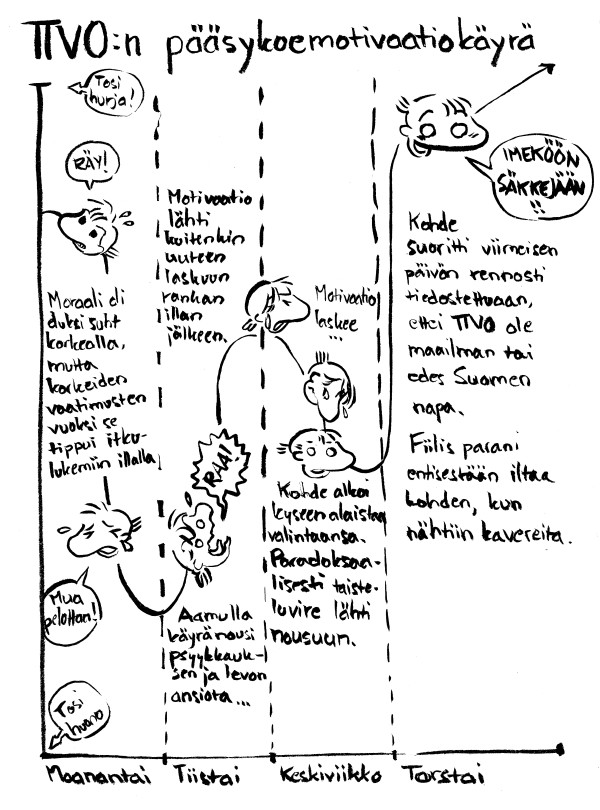 TTVO:n pääsykoemotivaatiokäyrä
Tosi
hurja!
RÄY!
Moraali oli
aluksi suht
korkealla,
mutta
korkeiden
vaatimusten
vuoksi se
tippui itku-
lukemiin illalla
Mua
pelottaa!
Tosi
huono
Motivaatio
lähti
kuitenkin
uuteen
laskuun
rankan
illan
jälkeen.
RÄÄ!
Aamulla
käyrä nousi
psyykkauk-
sen ja levon
ansiota...
Motivaatio
laskee
...
Kohde alkoi
kyseenalaistaa
valintaansa.
Paradoksaa-
lisesti taiste-
luvire lähti
nousuun.
IMEKÖÖN
SÄKKEJÄÄN
!!
Kohde
suoritti viimeisen
päivän rennosti
tiedostettuaan,
ettei TTVO ole
maailman tai
edes Suomen
napa.
Fiilis parani
entisestään iltaa
kohden, kun
nähtiin kavereita.
Maanantai
Tiistai
Keskiviikko
Torstai